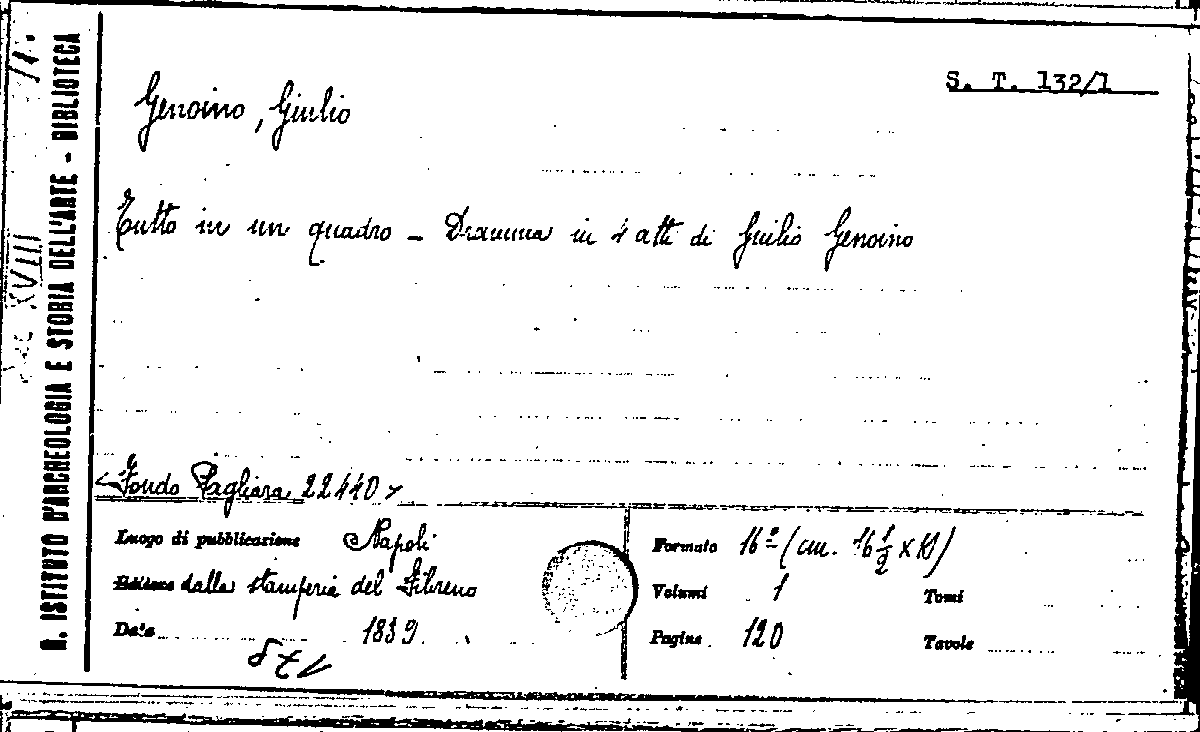 R. ISTITUTO D'ARCHEOLOGIA E STORIA DELL'ARTE - BIBLIOTECA
XVIII
S. T. 132/1
Genoino, Giulio
Tutto in un quadro - Dramma in 4 atti di Giulio Genoino
<Fondo Pagliara 22440>
Luogo di pubblicazione Napoli
Editore dalla stamperia del Fibreno
Data 1839
Formato 16º (cm. 16 1/2 x
Volumi 1
Tomi
Pagine 120
Tavole